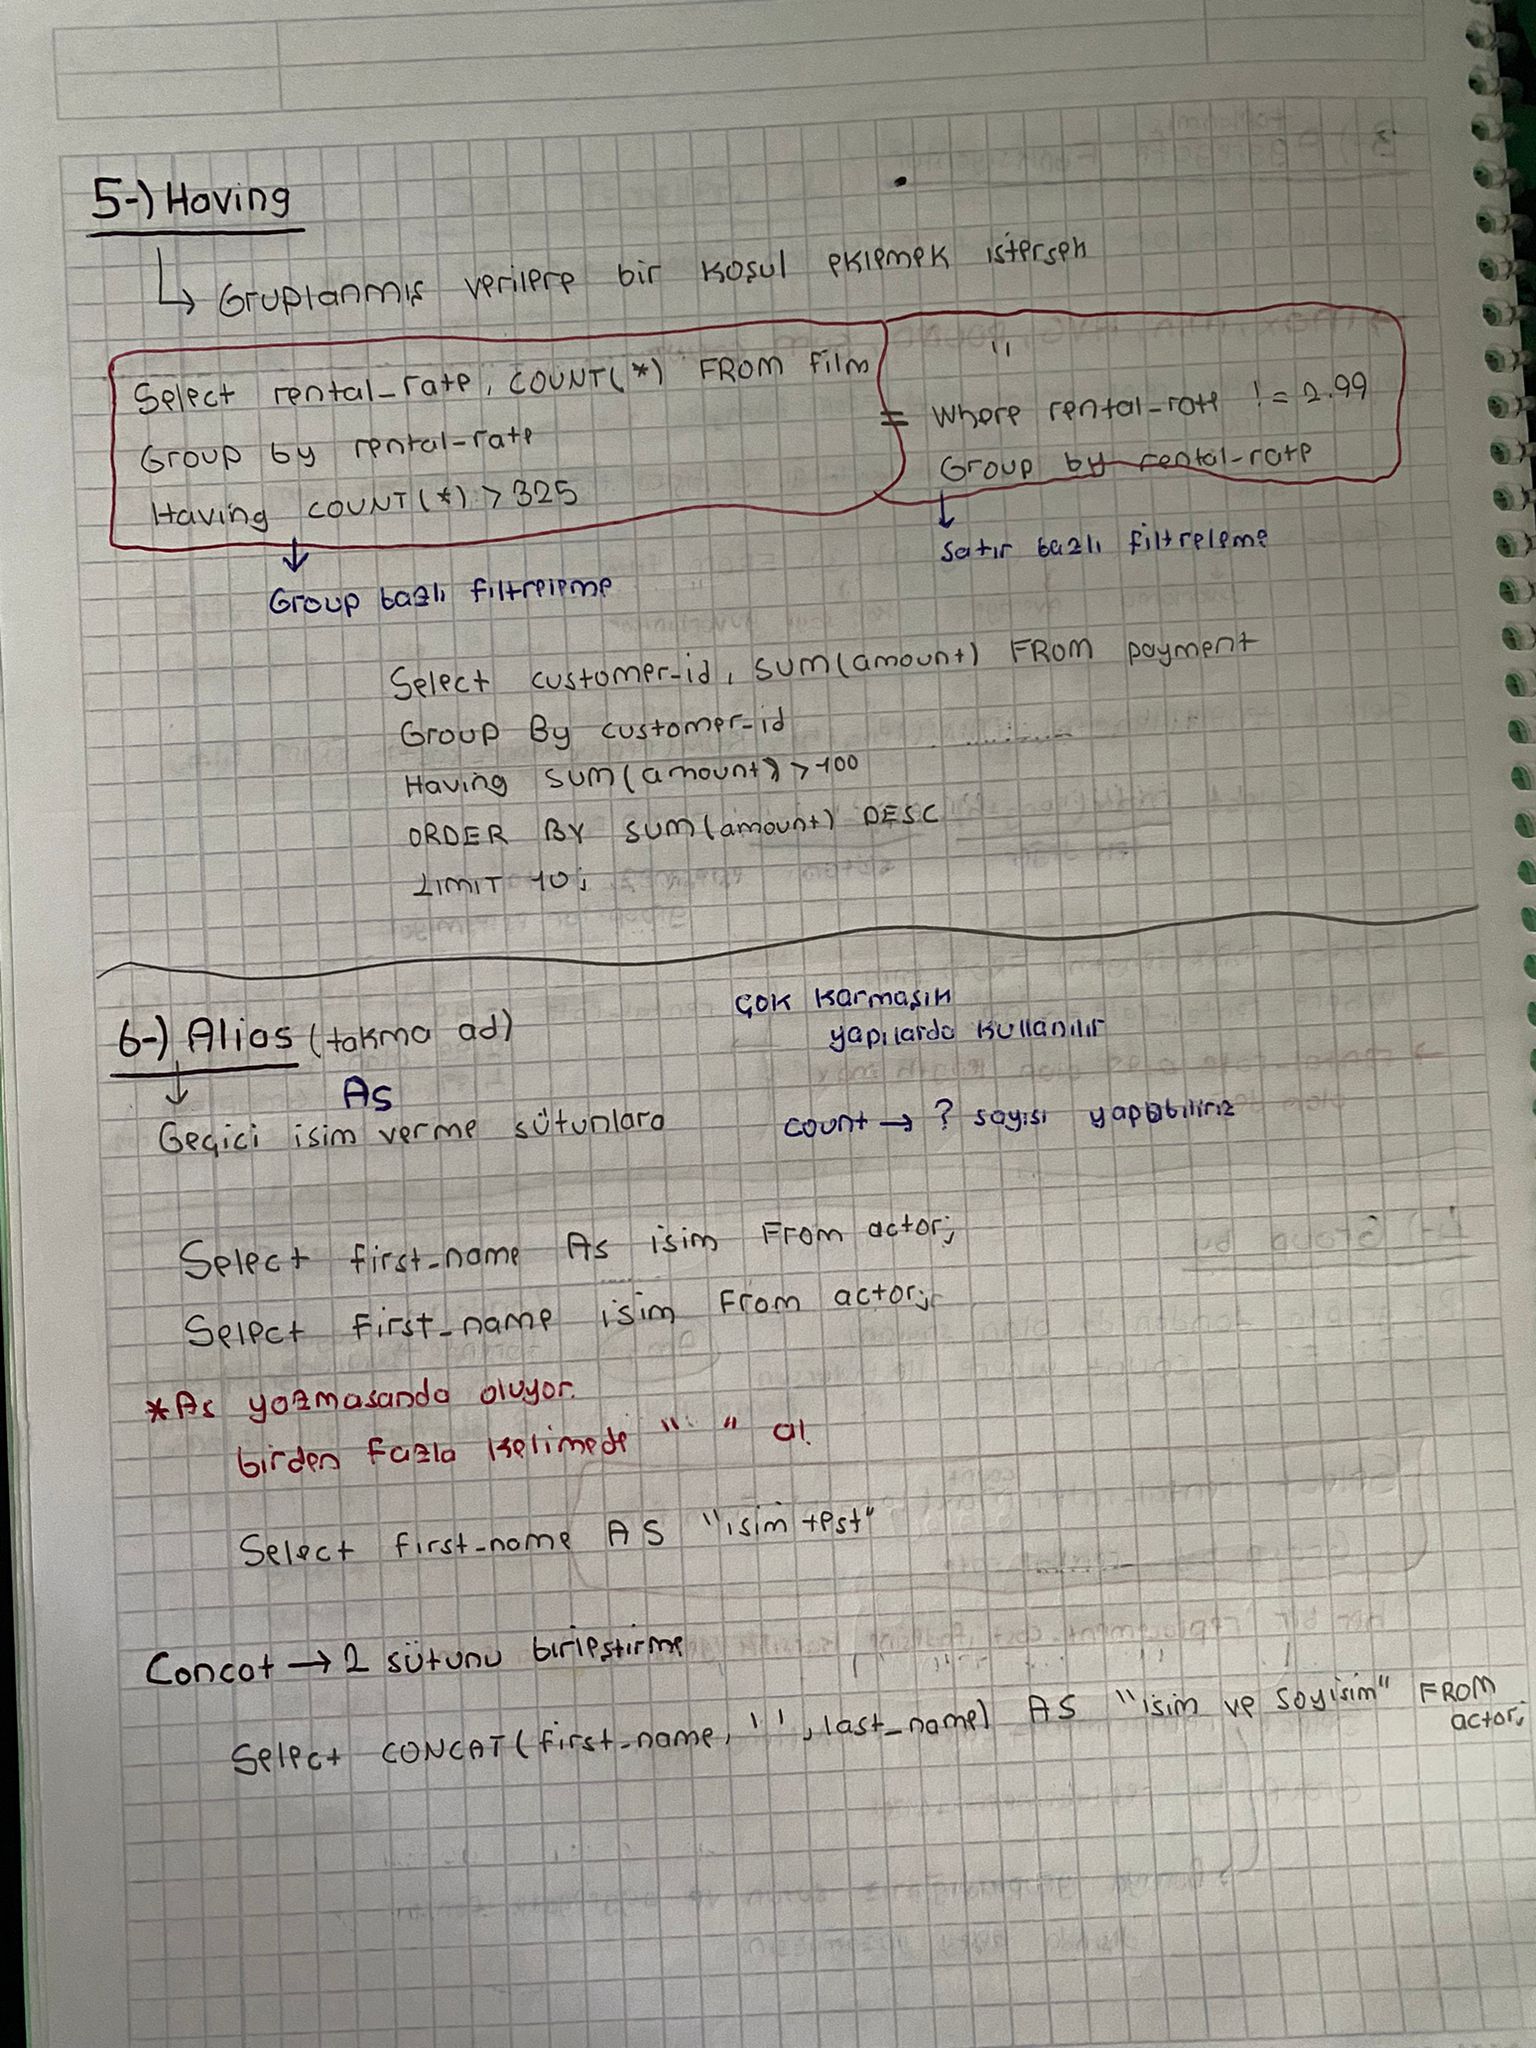 5-) Having
Gruplanmış verilere bir koşul eklemek istersen
Select rental_rate, COUNT(*) FROM film
Group by rental_rate
Having COUNT(*) > 325
"
= Where rental_rate != 2.99
Group by rental_rate
Satır bazlı filtreleme
Group bazlı filtreleme
Select customer_id, sum(amount) FROM payment
Group By customer_id
Having sum(amount) > 100
ORDER BY sum(amount) DESC
LIMIT 10;
6-) Alias (takma ad)
Çok karmaşık
yapılarda kullanılır
As
Geçici isim verme sütunlara
count → ? sayısı yapabiliriz
Select first_name As isim From actor;
Select first_name isim From actor;
*As yazmasanda oluyor.
birden fazla kelimede " " al.
Select first_name AS "isim test"
Concat → 2 sütunu birleştirme
Select CONCAT(first_name, ' ', last_name) AS "isim ve soyisim" FROM
actor;